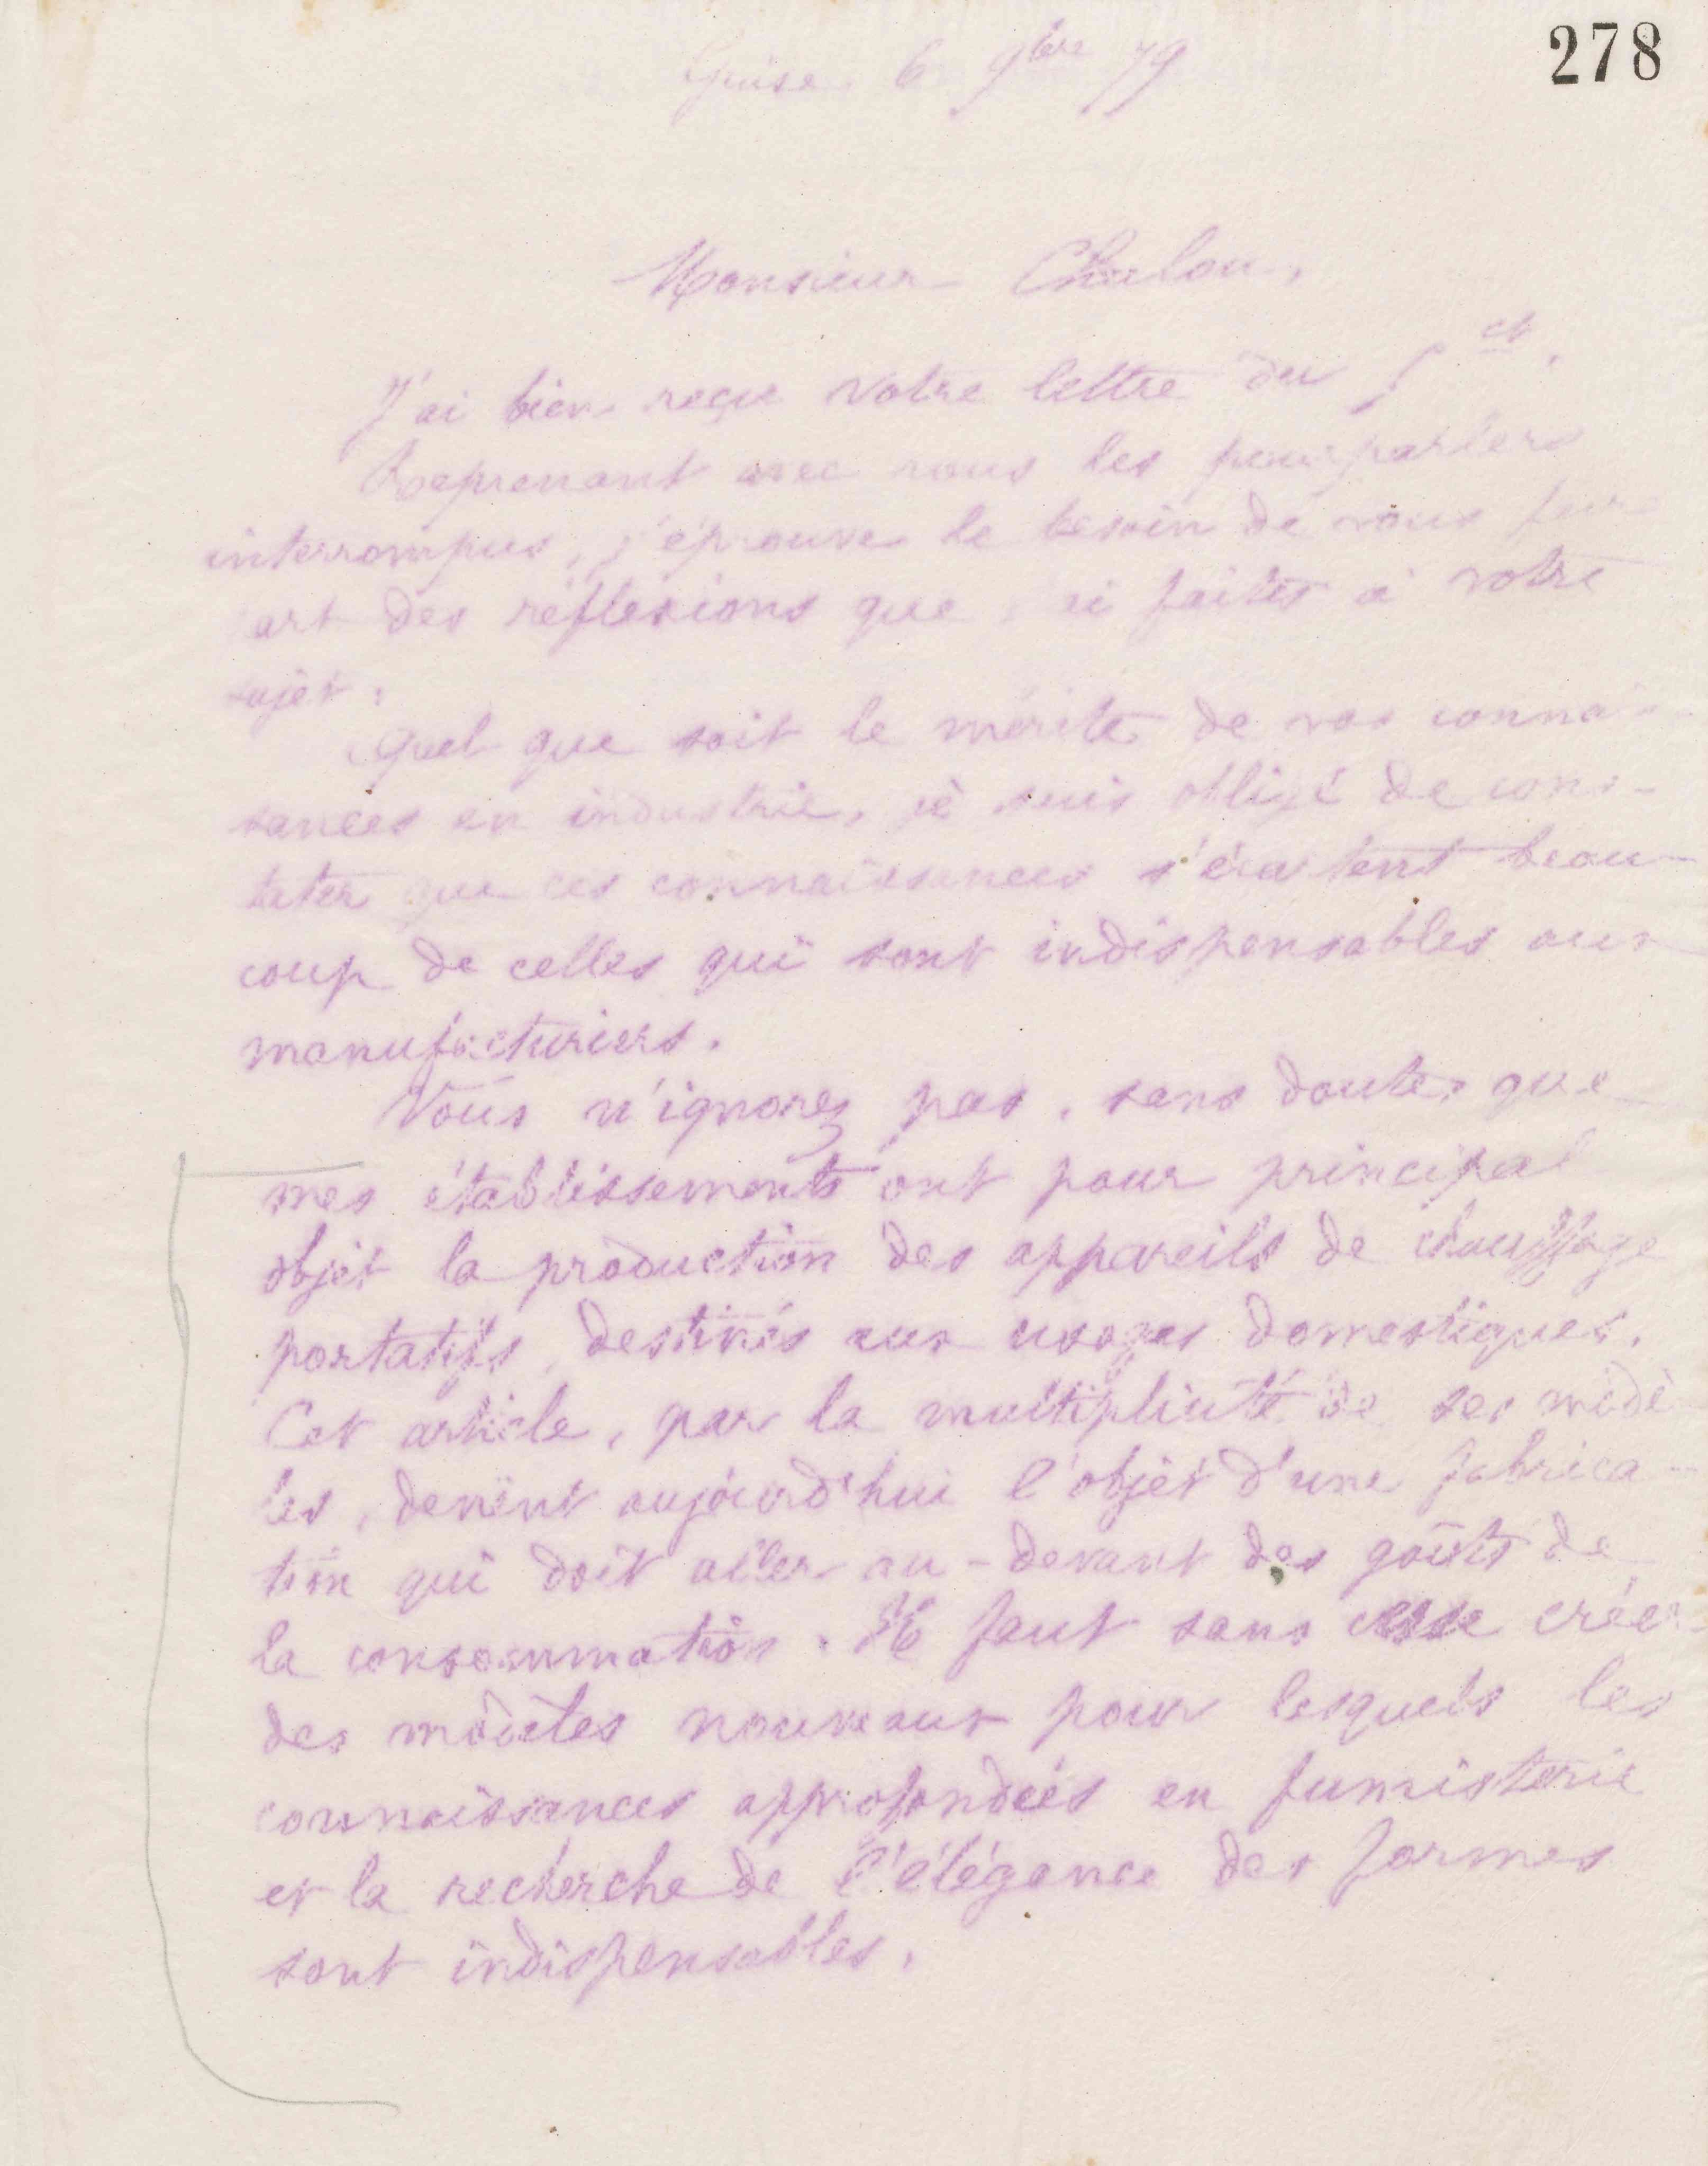 278
Guise 6 9bre 79
Monsieur Chalon,
J'ai bien reçu votre lettre du 5 ct.
Reprenant avec vous les pourparlers
interrompus, j'éprouve le besoin de vous faire
part des réflexions que j'ai faites à votre
sujet.
Quel que soit le mérite de vos connais-
sances en industrie, je suis obligé de cons-
tater que ces connaissances s'écartent beau-
coup de celles qui sont indispensables aux
manufacturiers.
Vous n'ignorez pas, sans doute, que
mes établissements ont pour principal
objet la production des appareils de chauffage
portatifs, destinés aux usages domestiques.
Cet article, par la multiplicité de ses modè-
les, devient aujourd'hui l'objet d'une fabrica-
tion qui doit aller au-devant des goûts de
la consommation. Il faut sans cesse créer
des modèles nouveaux pour lesquels les
connaissances approfondies en fumisterie
et la recherche de l'élégance des formes
sont indispensables.